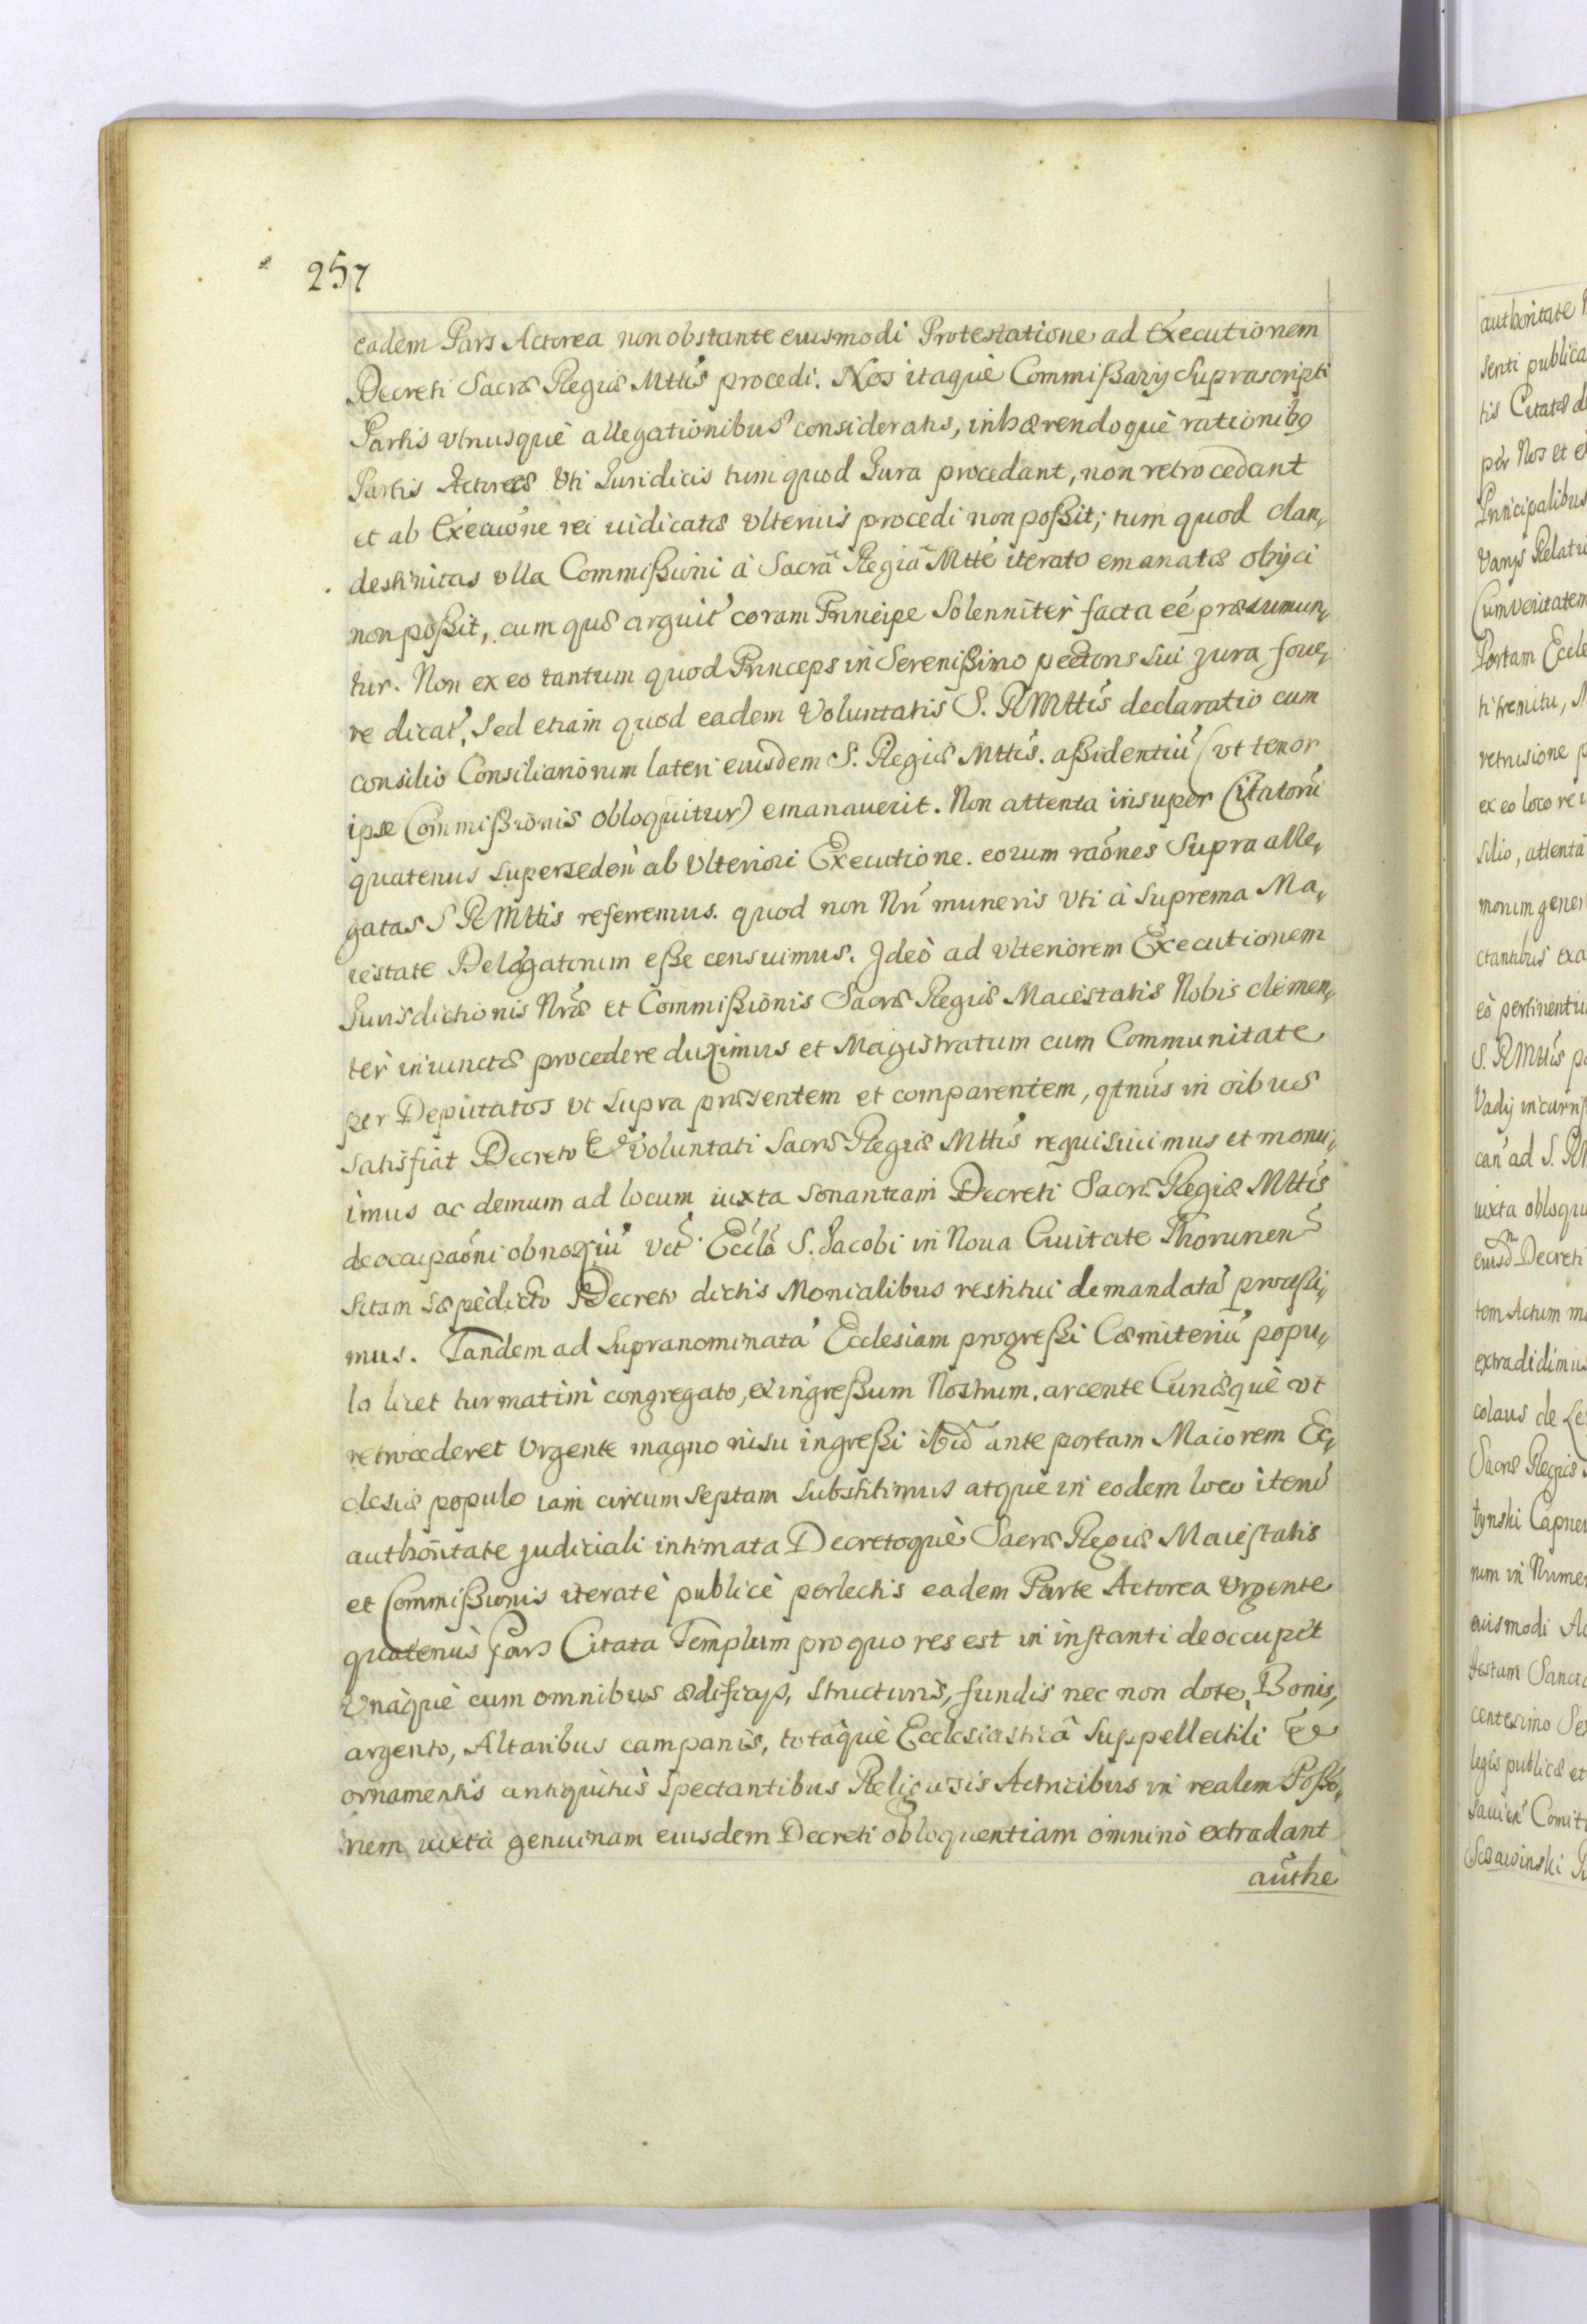 257
eadem Pars Actorea non obstante eiusmodi Protestatione ad Executionem
Decreti Sacræ Regiæ Mttis procedi. Nos itaquè Commißarij Suprascripti
Partis vtriusquè allegationibus consideratis, inhærendoquè rationibq
Partis Actoreæ Vti Juridicis tum quod Jura procedant, non retrocedant
et ab Execuōne rei iudicatæ vlterius procedi non poßit; tum quod clan„
destinitas vlla Commißioni à Sacrã Regiã Mtte iterato emanatæ obijci
non poßit, cum quæ arguit' coram Principe Solenniter facta eé præsumun„
tur. Non ex eo tantum quod Princeps in Serenißimo pectoris sui jura foue„
re dicat', Sed etiam quod eadem Voluntatis S. RMttis declaratio cum
consilio Consiliariorum lateri eiusdem S. Regiæ Mttis. aßidentiū (vt tenor
ipse Commißionis obloquitur) emanauerit. Non attenta insuper Citatorū
quatenus supersedeñ ab Vlteriori Executione. eorum raōnes Supra alle„
gatas S RMttis referremus. quod non Nri muneris Vti à Suprema Ma„
iestate Delegatorum eße censuimus. Jdeò ad vlteriorem Executionem
Jurisdictionis Nræ et Commißionis Sacræ Regiæ Maiestatis Nobis clemen„
tèr iniunctæ procedere duximus et Magistratum cum Communitate
per Deputatos vt supra præsentem et comparentem, qtnus in oibus
satisfiat Decreto & Voluntati Sacræ Regiæ Mttis requisiuimus et monu„
imus ac demum ad locum iuxta sonantiam Decreti Sacræ Regiæ Mttis
deoccupaōni obnoxiū vct. Eccla S. Jacobi in Noua Ciuitate Thorunen
sitam sæpèdicto Decreto dictis Monialibus restitui demandatā proceßi„
mus. Tandem ad Supranominatā Ecclesiam progreßi Cæmiteriū popu„
lo licet turmatim congregato, et ingreßum Nostrum. arcente Cunæquè vt
retrocederet Vrgente magno nisu ingreßi ibid ante portam Maiorem Ec„
clesiæ populo iam circum septam substitimus atquè in eodem loco iterū
authoritate judiciali intimata Decretoquè Sacræ Regiæ Maiestatis
et Commißionis iteratè publicè perlectis eadem Parte Actorea Vrgente
quatenùs Pars Citata Templum pro quo res est in instanti deoccupet
Vnàquè cum omnibus ædificijs, structuris, fundis nec non dote, Bonis,
argento, Altaribus campanis, totâquè Ecclesiasticâ suppellectili &
ornamentis antiquitùs spectantibus Religiosis Actricibus in realem Poßo„
nem iuxta genuinam eiusdem Decreti obloquentiam omninò extradant
authe